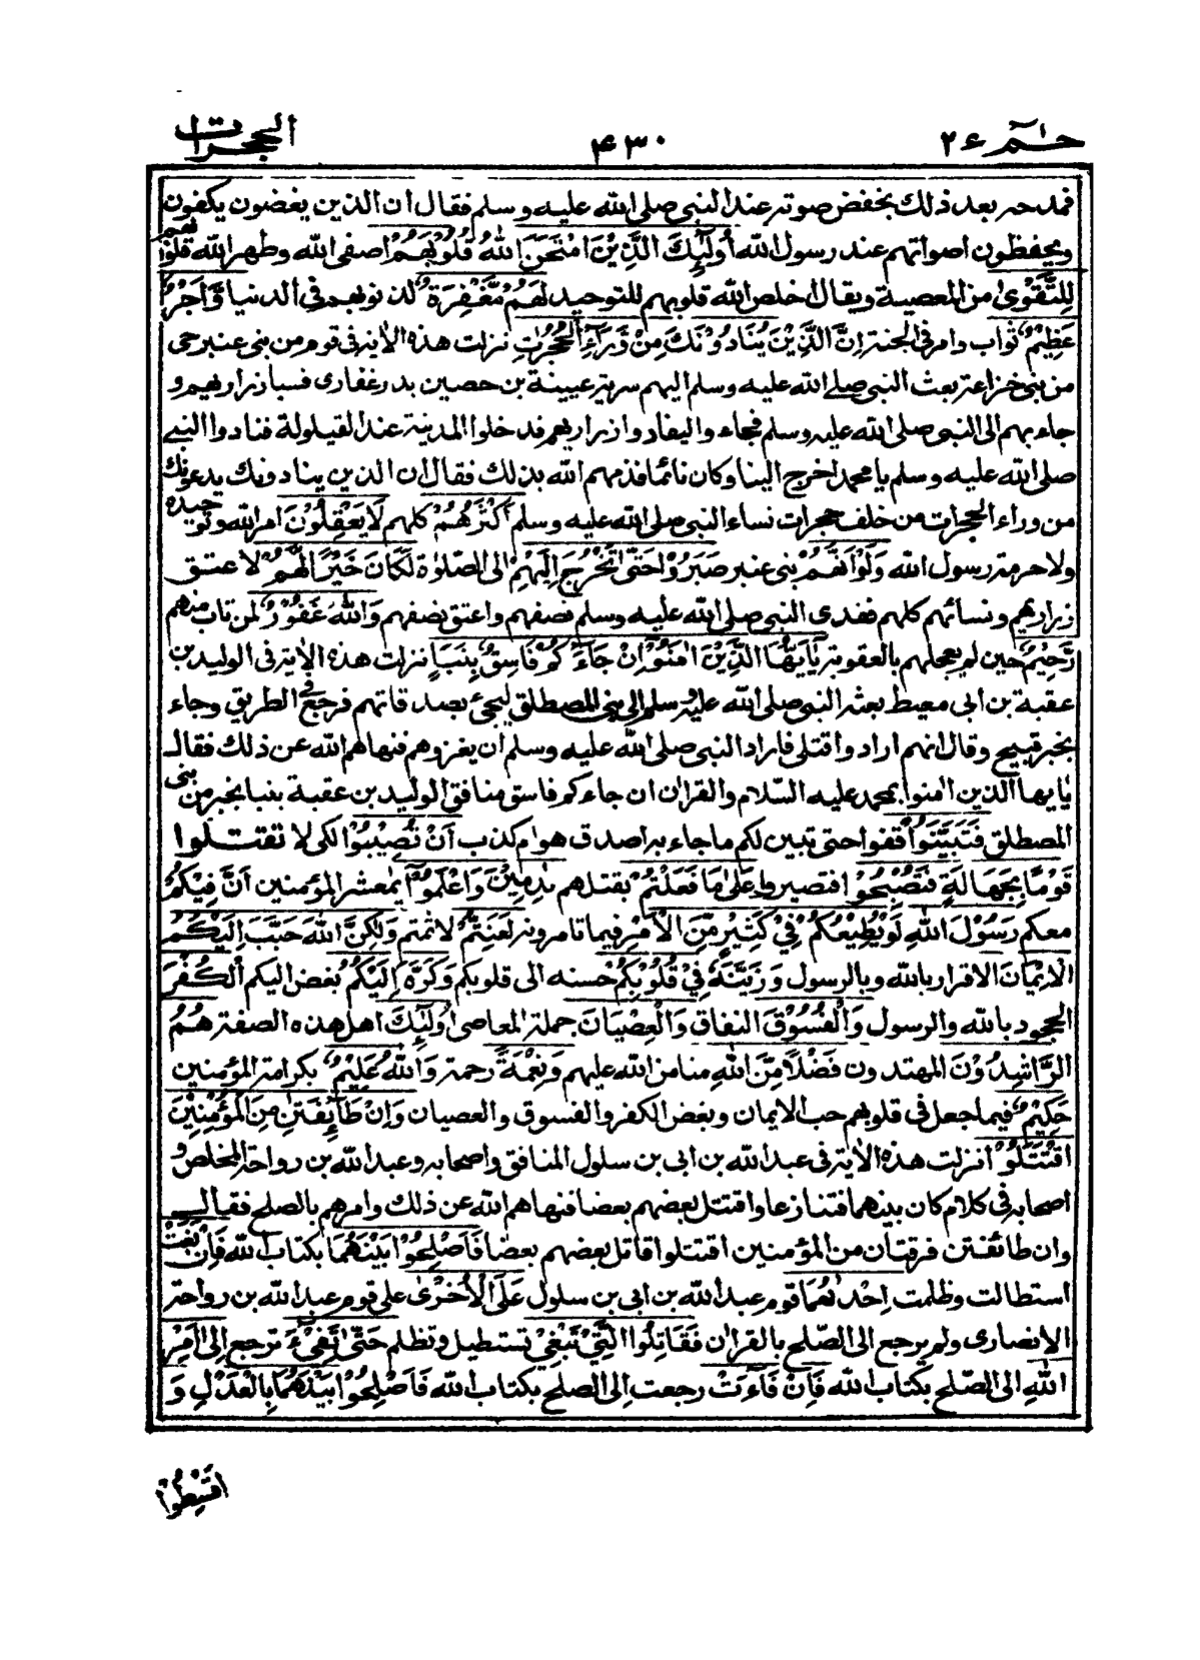 حٰمٓ ٢٦
٤٣٠
الحجرات
فمدحه بعد ذلك بخفض صوته عند النبى صلى الله عليه وسلم فقال ان الذين يغضون يكفون
ويخفظون اصواتهم عند رسول الله اُولٰٓئِكَ الَّذِيْنَ امْتَحَنَ اللّٰهُ قُلُوْبَهُمْ اصفى الله وطهر الله قلوبهم
لِلتَّقْوٰى من المعصية ويقال اخلص الله قلوبهم للتوحيد لَهُمْ مَّغْفِرَةٌ لذنوبهم فى الدنيا وَّاَجْرٌ
عَظِيْمٌ ثواب وافر فى الجنة اِنَّ الَّذِيْنَ يُنَادُوْنَكَ مِنْ وَّرَآءِ الْحُجُرٰتِ نزلت هذه الاٰية فى قوم من بنى عنبر حى
من بنى خزاعة بعث النبى صلى الله عليه وسلم اليهم سرية عيينة بن حصين بدر غفارى فسبا ذراريهم و
جاء بهم الى النبى صلى الله عليه وسلم فجاءوا ليفادوا ذراريهم فدخلوا المدينة عند القيلولة فنادوا النبى
صلى الله عليه وسلم يا محمد اخرج الينا وكان نائما فذمهم الله بذلك فقال ان الذين ينادونك يدعونك
من وراء الحجرات من خلف حجرات نساء النبى صلى الله عليه وسلم اَكْثَرُهُمْ كلهم لَا يَعْقِلُوْنَ امر الله وتوحيده
ولا حرمة رسول الله وَلَوْ اَنَّهُمْ بنى عنبر صَبَرُوْا حَتّٰى تَخْرُجَ اِلَيْهِمْ الى الصلوٰة لَكَانَ خَيْرًا لَّهُمْ لاعتق
ذراريهم ونسائهم كلهم ففدى النبى صلى الله عليه وسلم نصفهم واعتق نصفهم وَاللّٰهُ غَفُوْرٌ لمن تاب منهم
رَّحِيْمٌ حين لم يعجلهم بالعقوبة يٰٓاَيُّهَا الَّذِيْنَ اٰمَنُوْٓا اِنْ جَآءَكُمْ فَاسِقٌ بِنَبَاٍ نزلت هذه الاٰية فى الوليد بن
عقبة بن ابى معيط بعثه النبى صلى الله عليه وسلم الى بنى المصطلق ليجئ بصدقاتهم فرجع فى الطريق وجاء
بخبر قبيح وقال انهم ارادوا قتلى فاراد النبى صلى الله عليه وسلم ان يغزوهم فنهاهم الله عن ذلك فقال
يٰايها الذين اٰمنوا بمحمد عليه السّلام والقراٰن ان جاءكم فاسق منافق الوليد بن عقبة بنبا بخبر من بنى
المصطلق فَتَبَيَّنُوْٓا قفوا حتى تبين لكم ما جاء به اصدق هو ام كذب اَنْ تُصِيْبُوْا لكى لا تقتلوا
قَوْمًا بِجَهَالَةٍ فَتُصْبِحُوْا فتصيروا عَلٰى مَا فَعَلْتُمْ بقتلهم نٰدِمِيْنَ وَاعْلَمُوْٓا يٰمعشر المؤمنين اَنَّ فِيْكُمْ
معكم رَسُوْلَ اللّٰهِ لَوْ يُطِيْعُكُمْ فِىْ كَثِيْرٍ مِّنَ الْاَمْرِ فيما تامرونه لَعَنِتُّمْ لاثمتم وَلٰكِنَّ اللّٰهَ حَبَّبَ اِلَيْكُمُ
الْاِيْمَانَ الاقرار بالله وبالرسول وَزَيَّنَهٗ فِىْ قُلُوْبِكُمْ حسنه الى قلوبكم وَكَرَّهَ اِلَيْكُمُ بغض اليكم الْكُفْرَ
الجحود بالله والرسول وَالْفُسُوْقَ النفاق وَالْعِصْيَانَ جملة المعاصى اُولٰٓئِكَ اهل هذه الصفة هُمُ
الرّٰشِدُوْنَ المهتدون فَضْلًا مِّنَ اللّٰهِ منا من الله عليهم وَنِعْمَةً رحمة وَاللّٰهُ عَلِيْمٌ بكرامة المؤمنين
حَكِيْمٌ فيما جعل فى قلوبهم حب الايمان وبغض الكفر والفسوق والعصيان وَاِنْ طَآئِفَتٰنِ مِنَ الْمُؤْمِنِيْنَ
اقْتَتَلُوْا نزلت هذه الاٰية فى عبد الله بن ابى بن سلول المنافق واصحابه وعبد الله بن رواحة المخلص و
اصحابه فى كلام كان بينهما فتنازعا واقتتل بعضهم بعضا فنهاهم الله عن ذلك وامرهم بالصلح فقال
وان طائفتٰن فرقتان من المؤمنين اقتتلوا قاتل بعضهم بعضا فَاَصْلِحُوْا بَيْنَهُمَا بكتاب الله فَاِنْ بَغَتْ
استطالت وظلمت اِحْدٰىهُمَا قوم عبد الله بن ابى بن سلول عَلَى الْاُخْرٰى على قوم عبد الله بن رواحة
الانصارى ولم يرجع الى الصّلح بالقراٰن فَقَاتِلُوا الَّتِىْ تَبْغِىْ تستطيل وتظلم حَتّٰى تَفِىْٓءَ ترجع اِلٰى اَمْرِ
اللّٰهِ الى الصّلح بكتاب الله فَاِنْ فَآءَتْ رجعت الى الصلح بكتاب الله فَاَصْلِحُوْا بَيْنَهُمَا بِالْعَدْلِ وَ
اَقْسِطُوْا